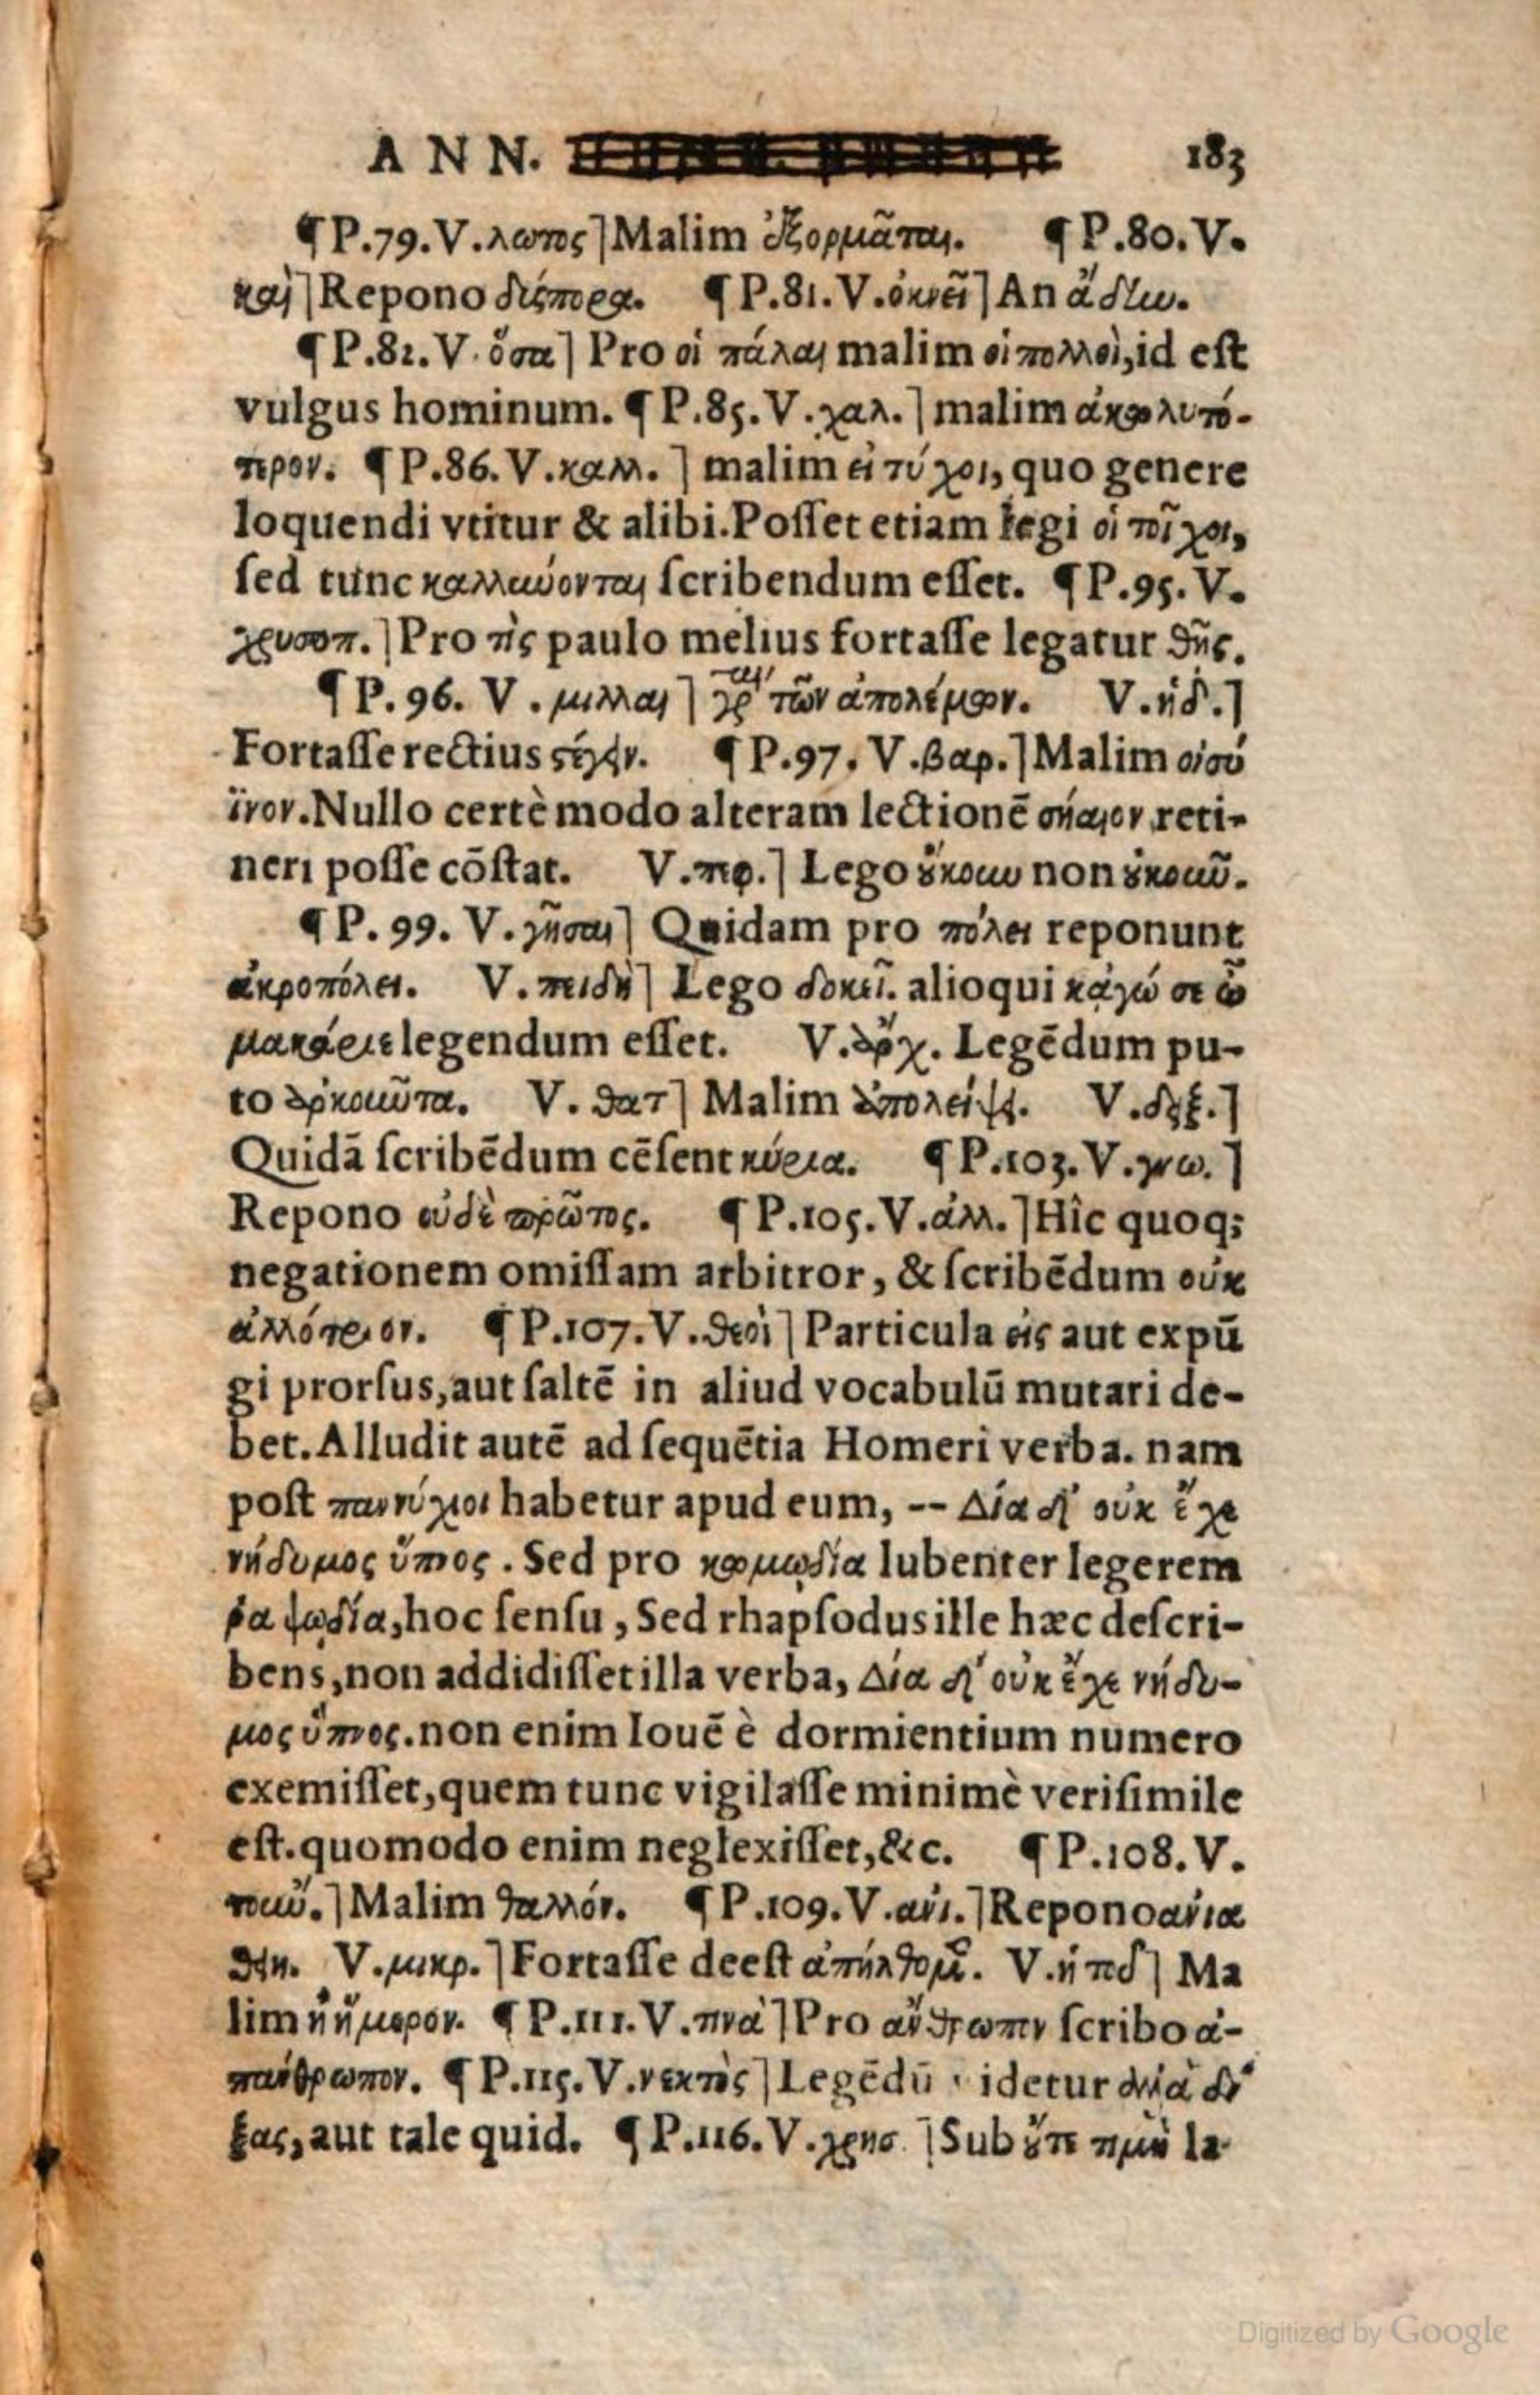 ANN. 183
¶ P.79.V.λωτος] Malim ἐξορμᾶται. ¶ P.80.V.
καὶ] Repono δίσπορα. ¶ P.81.V.ὀκνεῖ] An ἄδην.
¶ P.82.V.ὅσα] Pro οἱ πάλαι malim οἱ πολλοὶ, id eſt
vulgus hominum. ¶ P.85.V.χαλ.] malim ἀκωλυτό-
τερον. ¶ P.86.V.καλλ.] malim εἰ τύχοι, quo genere
loquendi vtitur & alibi. Poſſet etiam legi οἱ τοῖχοι,
ſed tunc καλλιωύονται ſcribendum eſſet. ¶ P.95.V.
χρυσοπ.] Pro τὶς paulo melius fortaſſe legatur θῆς.
¶ P.96. V. μιλλαι] γρ τῶν ἀπολέμων. V.ἡδ.]
Fortaſſe rectius στέγειν. ¶ P.97. V.βαρ.] Malim οἰσύ
ϊνον. Nullo certè modo alteram lectionē σήσαιον reti-
neri poſſe cōſtat. V.περ.] Lego οὔκουν non οὐκοῦν.
¶ P. 99. V. γῆσαι] Quidam pro πόλει reponunt
ἀκροπόλει. V. πειδὴ] Lego δοκεῖ. alioqui κᾀγώ σε ὦ
μακάριε legendum eſſet. V.ἄρχ. Legēdum pu-
to ἀρκοῦντα. V. θατ] Malim ἀπολείψει. V.δεξ.]
Quidā ſcribēdum cēſent κύρια. ¶ P.103.V.γνω.]
Repono οὐδὲ πρῶτος. ¶ P.105.V.ἀλλ.] Hîc quoq;
negationem omiſſam arbitror, & ſcribēdum οὐκ
ἀλλότριον. ¶ P.107.V.θεοὶ] Particula εἰς aut expū
gi prorſus, aut ſaltē in aliud vocabulū mutari de-
bet. Alludit autē ad ſequētia Homeri verba. nam
poſt παννύχιοι habetur apud eum, -- Δία δ' οὐκ ἔχε
νήδυμος ὕπνος. Sed pro κωμῳδία lubenter legerem
ῥαψῳδία, hoc ſenſu, Sed rhapſodus ille hæc deſcri-
bens, non addidiſſet illa verba, Δία δ' οὐκ ἔχε νήδυ-
μος ὕπνος. non enim Iouē è dormientium numero
exemiſſet, quem tunc vigilaſſe minimè veriſimile
eſt. quomodo enim neglexiſſet, &c. ¶ P.108.V.
τοιού.] Malim θαλλόν. ¶ P.109.V.ανι.] Repono ανια
θείη. V.μικρ.] Fortaſſe deeſt ἀπήλθομεν. V.ἡ πδ] Ma
lim ἢ ἥμερον. ¶ P.111.V.τινὰ] Pro ἄνθρωπιν ſcribo ἀ-
πάνθρωπον. ¶ P.115.V.νεκτὸς] Legēdū videtur
ξας, aut tale quid. ¶ P.116.V.χρησ.] Sub οὔτε τιμὴ la-
Digitized by Google